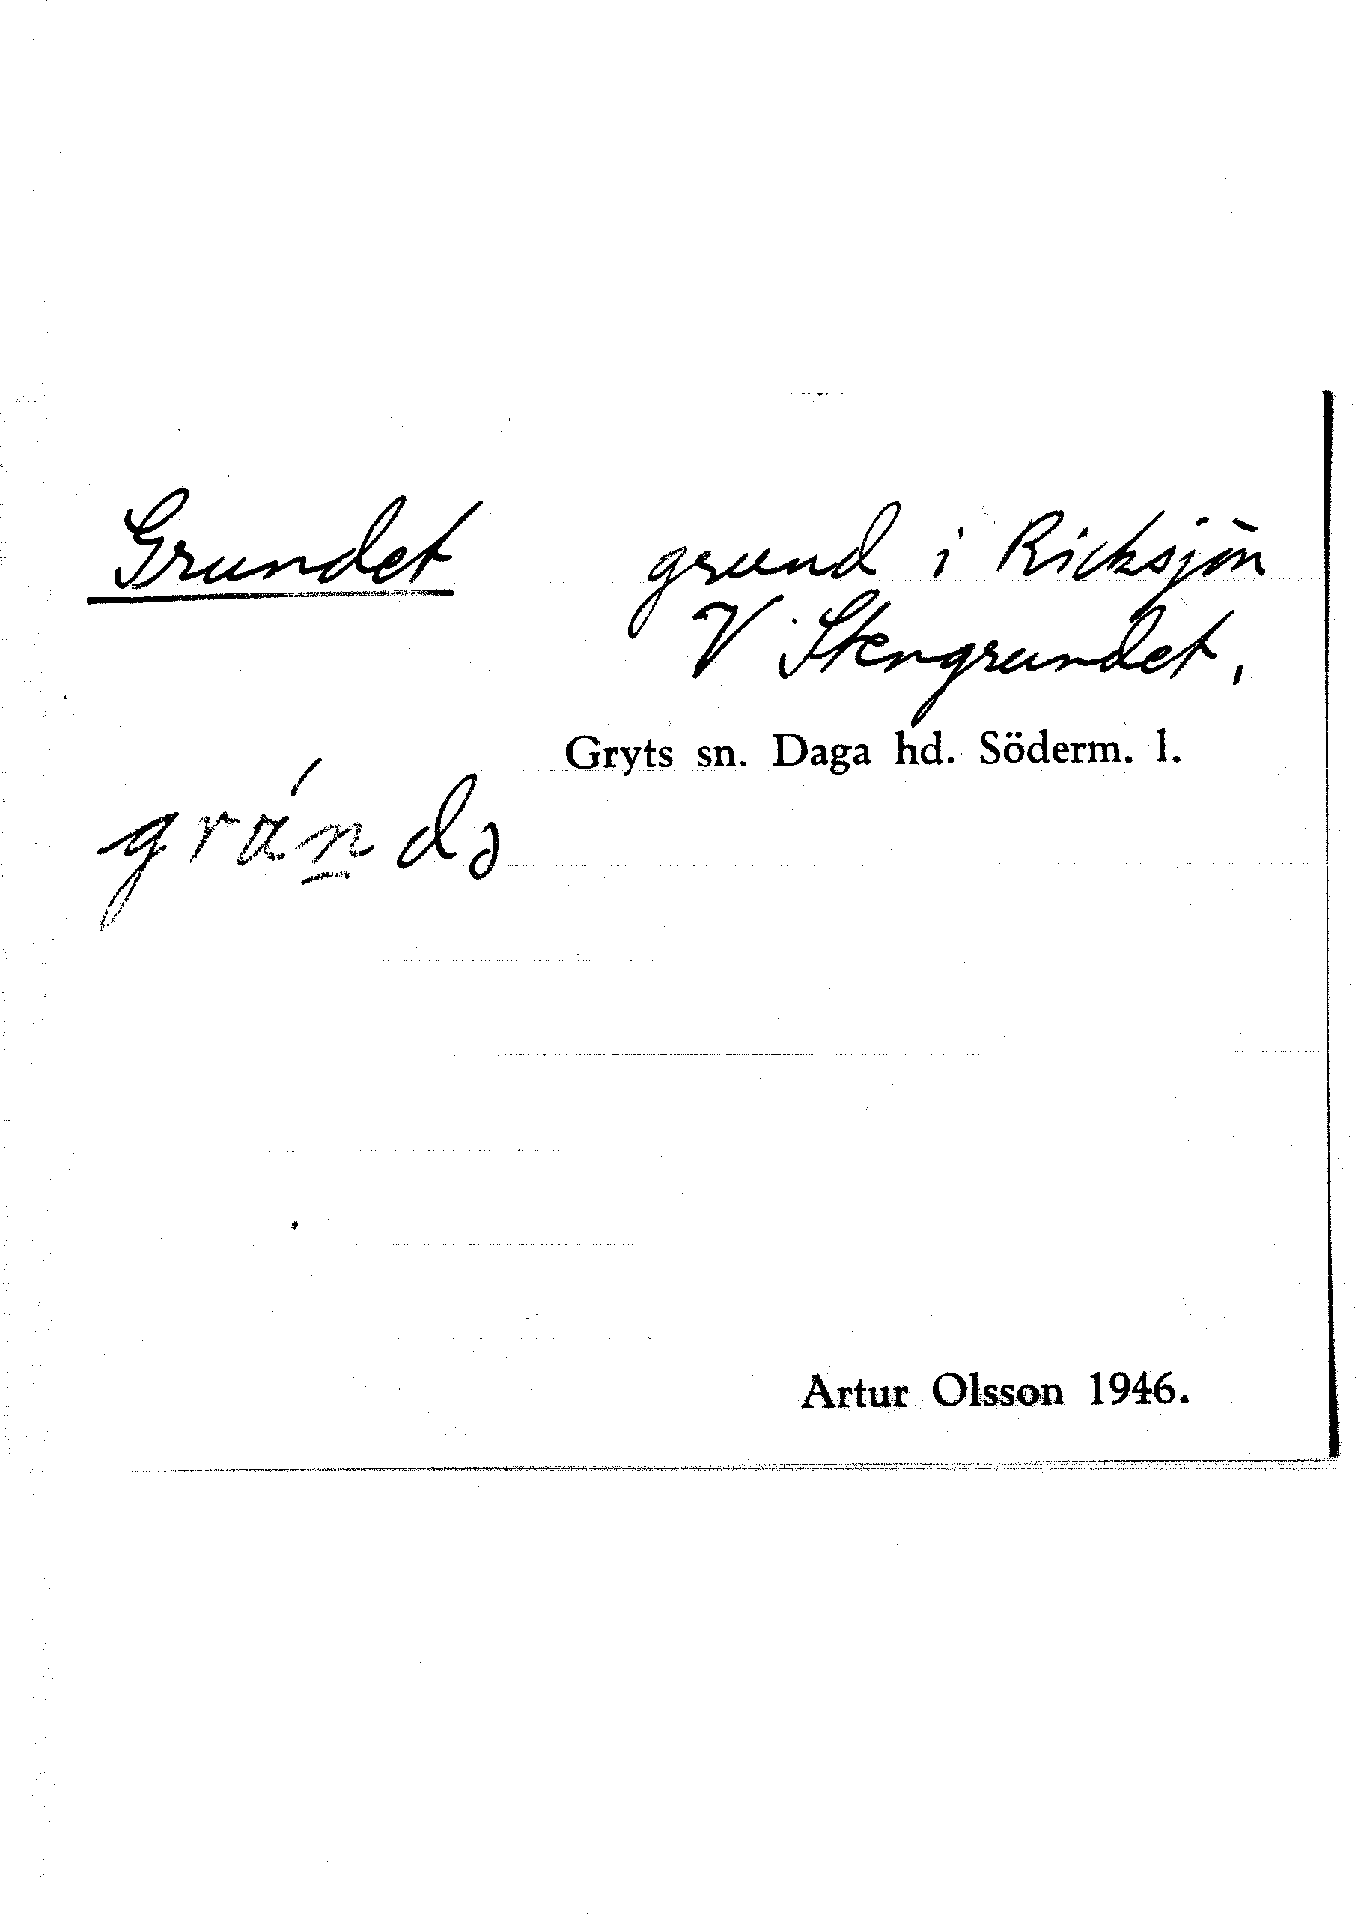 Grundet grund i Ricksjön
V Stengrundet,
Gryts sn. Daga hd. Söderm. l.
Artur Olsson 1946.